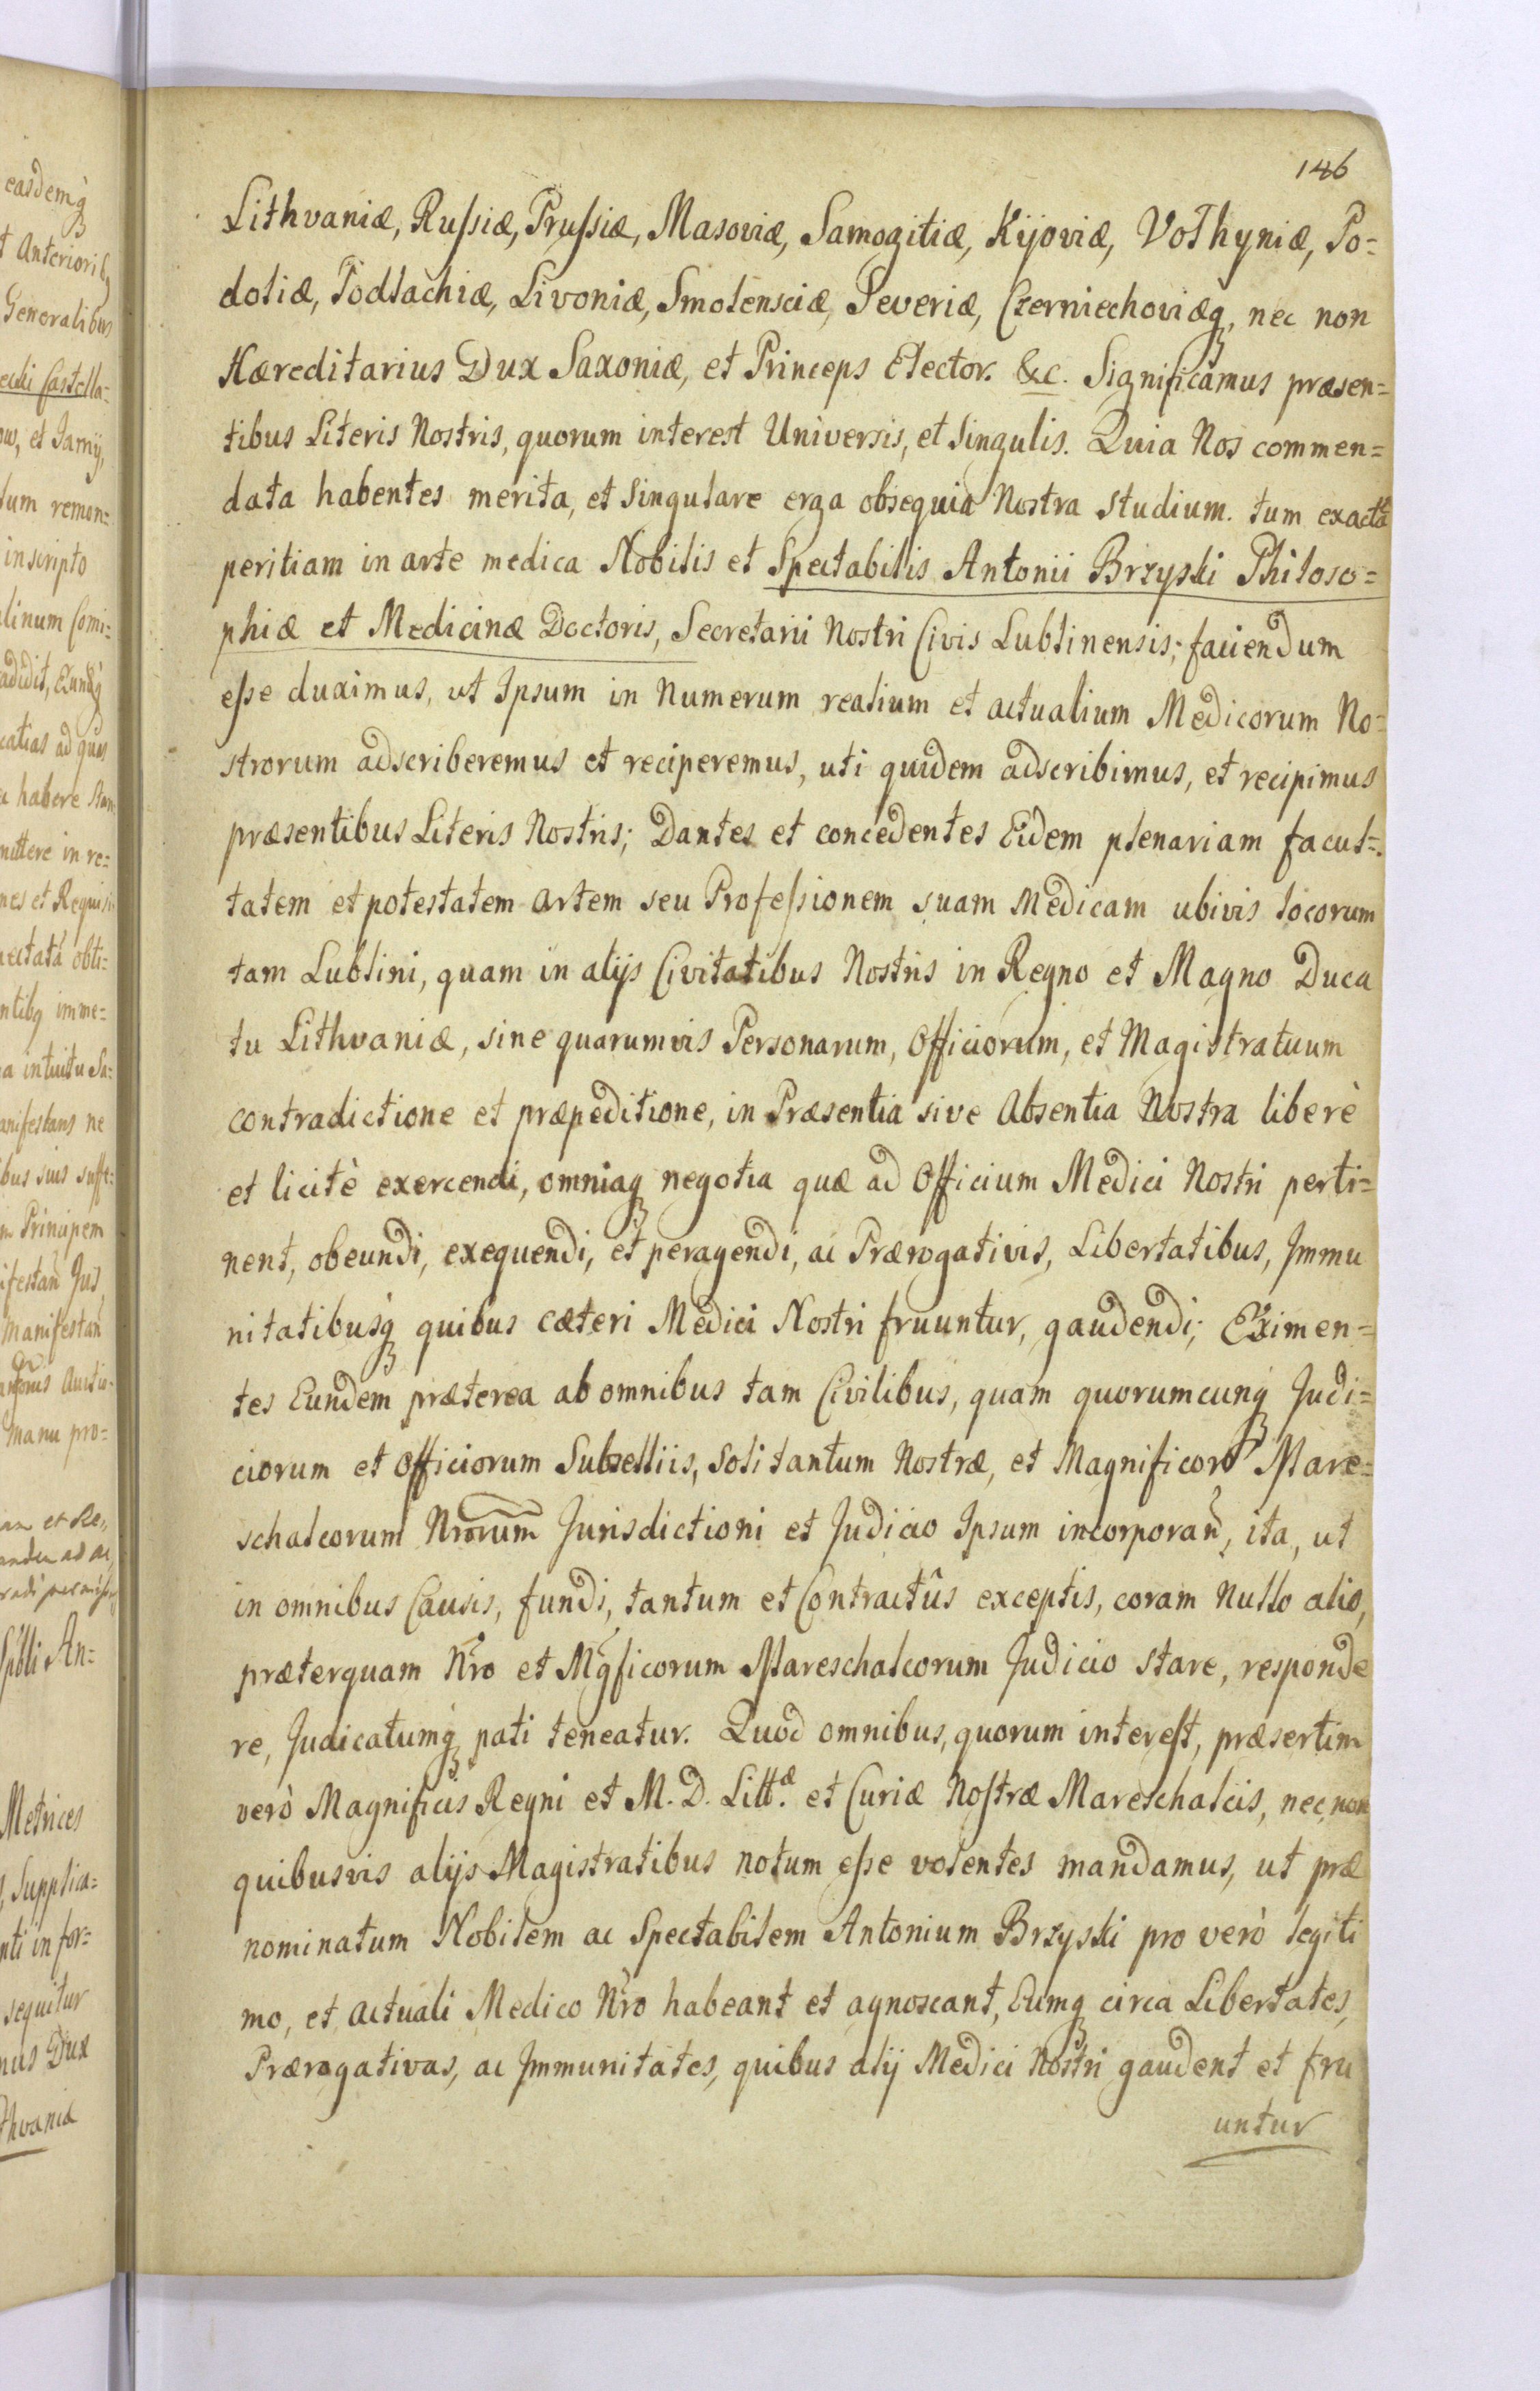 146
Lithvaniæ, Russiæ, Prussiæ, Masoviæ, Samogitiæ, Kijoviæ, Volhyniæ, Po=
doliæ, Podlachiæ, Livoniæ, Smolensciæ, Severiæ, Czerniechoviæq, nec non
Hæreditarius Dux Saxoniæ, et Princeps Elector. &c. Significamus præsen=
tibus Literis Nostris, quorum interest Universis, et Singulis. Quia Nos commen=
data habentes merita, et singulare erga obsequia Nostra studium. tum exactã
peritiam in arte medica Nobilis et Spectabilis Antonii Brzyski Philoso=
phiæ et Medicinæ Doctoris, Secretarii Nostri Civis Lublinensis; faciendum
esse duximus, ut Ipsum in Numerum realium et actualium Medicorum No=
strorum adscriberemus et reciperemus, uti quidem adscribimus, et recipimus
præsentibus Literis Nostris; Dantes et concedentes Eidem plenariam facul=
tatem et potestatem artem seu Professionem suam Medicam ubivis locorum
tam Lublini, quam in alijs Civitatibus Nostris in Regno et Magno Duca
tu Lithvaniæ, sine quarumvis Personarum, Officiorum, et Magistratuum
contradictione et præpeditione, in Præsentia sive Absentia Nostra liberè
et licitè exercendi, omniaq negotia quæ ad Officium Medici Nostri perti=
nent, obeundi, exequendi, et peragendi, ac Prærogativis, Libertatibus, Immu
nitatibusq quibus cæteri Medici Nostri fruuntur, gaudendi; Eximen=
tes Eundem præterea ab omnibus tam Civilibus, quam quorumcunq Judi=
ciorum et Officiorum Subselliis, soli tantum Nostræ, et Magnificor Mare=
schalcorum Nrorum Jurisdictioni et Judicio Ipsum incorporañ, ita, ut
in omnibus Causis, fundi, tantum et Contractûs exceptis, coram Nullo alio,
præterquam Nro et Mgficorum Mareschalcorum Judicio stare, responde
re, Judicatumq pati teneatur. Quod omnibus, quorum interest, præsertim
verò Magnificis Regni et M. D. Litt.æ et Curiæ Nostræ Mareschalcis, nec non
quibusvis alijs Magistratibus notum esse volentes mandamus, ut præ
nominatum Nobilem ac Spectabilem Antonium Brzyski pro verò legiti
mo, et actuali Medico Nro habeant et agnoscant, Eumq circa Libertates,
Prærogativas, ac Immunitates, quibus alij Medici Nostri gaudent et fru
untur